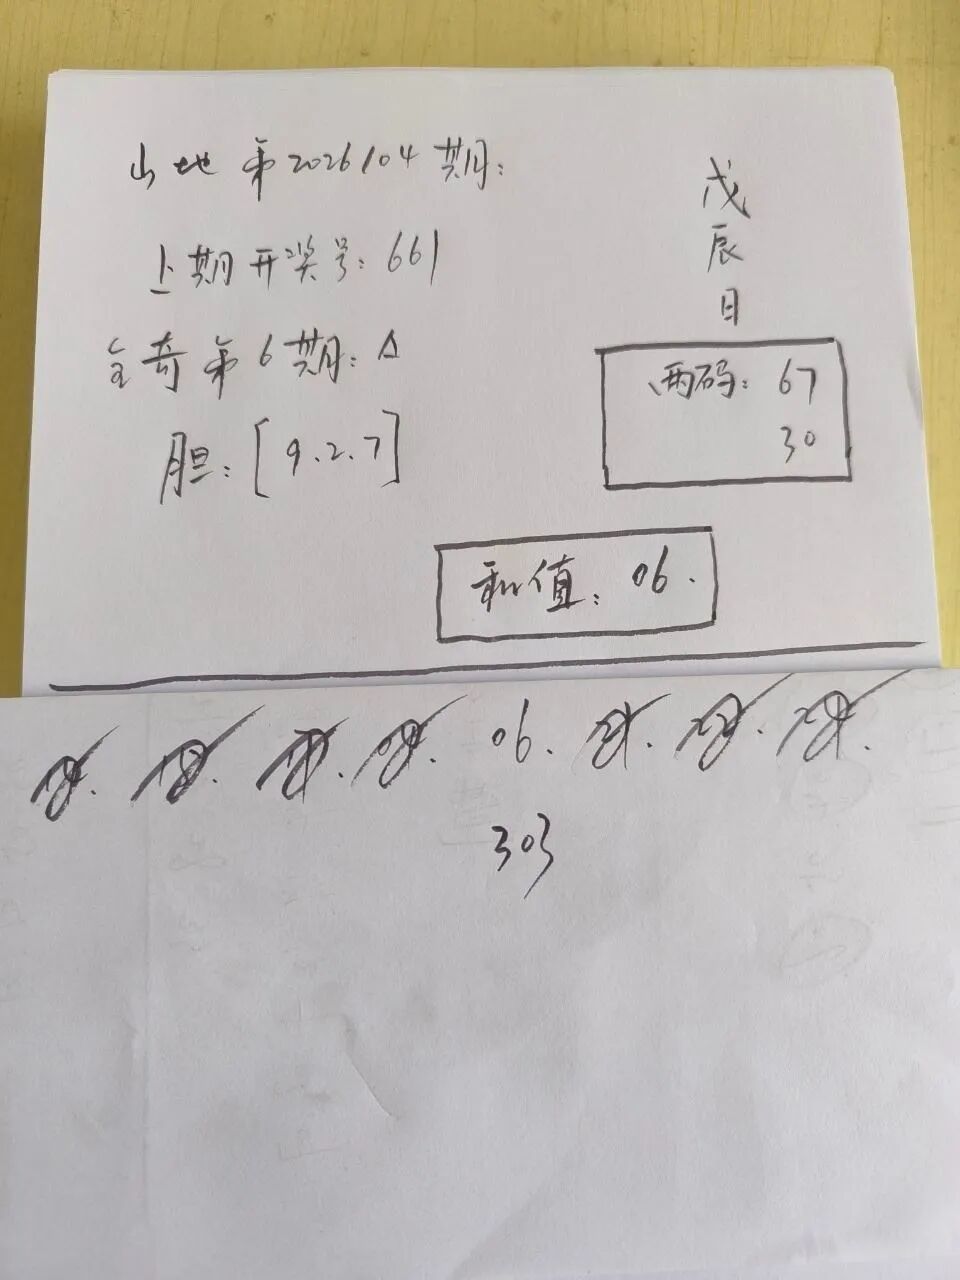 山地第2026104期:
上期开奖号: 661
全奇第6期: △
胆: [9.2.7]
戊辰日
两码: 67
30
和值: 06.
06.
303